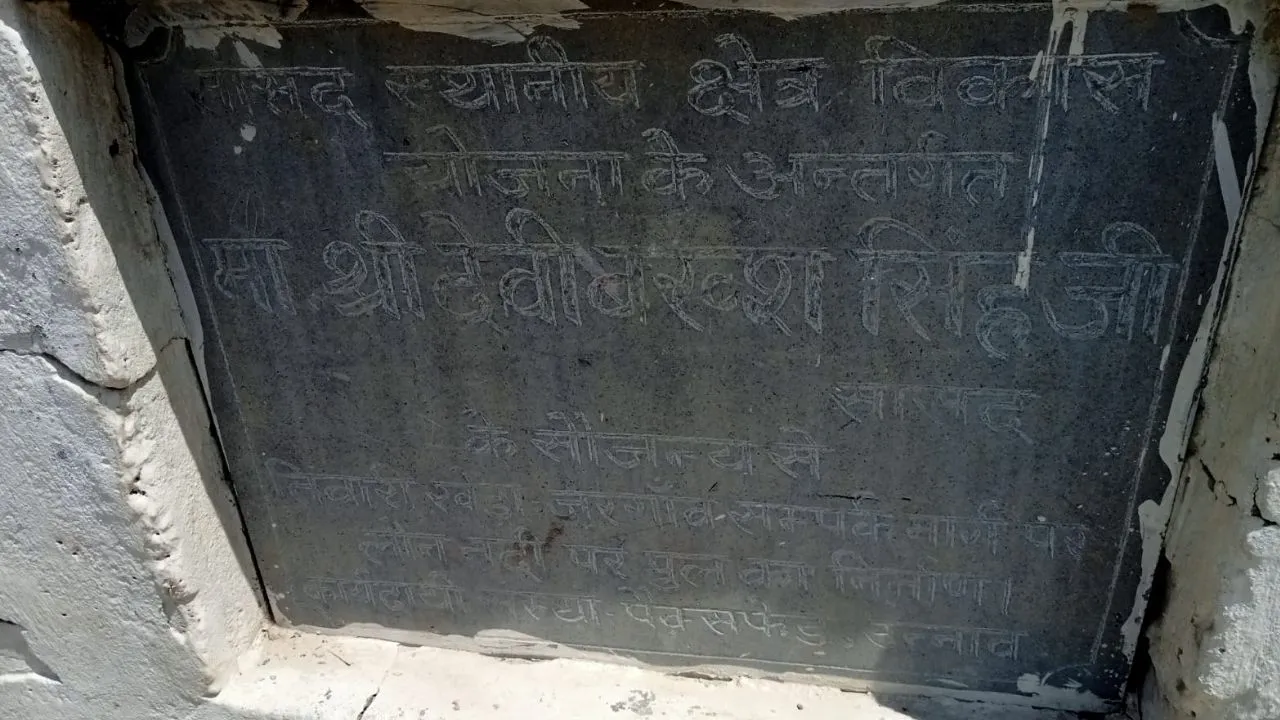 सांसद स्थानीय क्षेत्र विकास
योजना के अन्तर्गत
मा० श्री देवीबख्श सिंह जी
सांसद
के सौजन्य से
निवारी खेड़ा जरगाँव-सम्पर्क मार्ग पर
लौन नदी पर पुल का निर्माण।
कार्यदायी संस्था-पैक्सफेड, उन्नाव